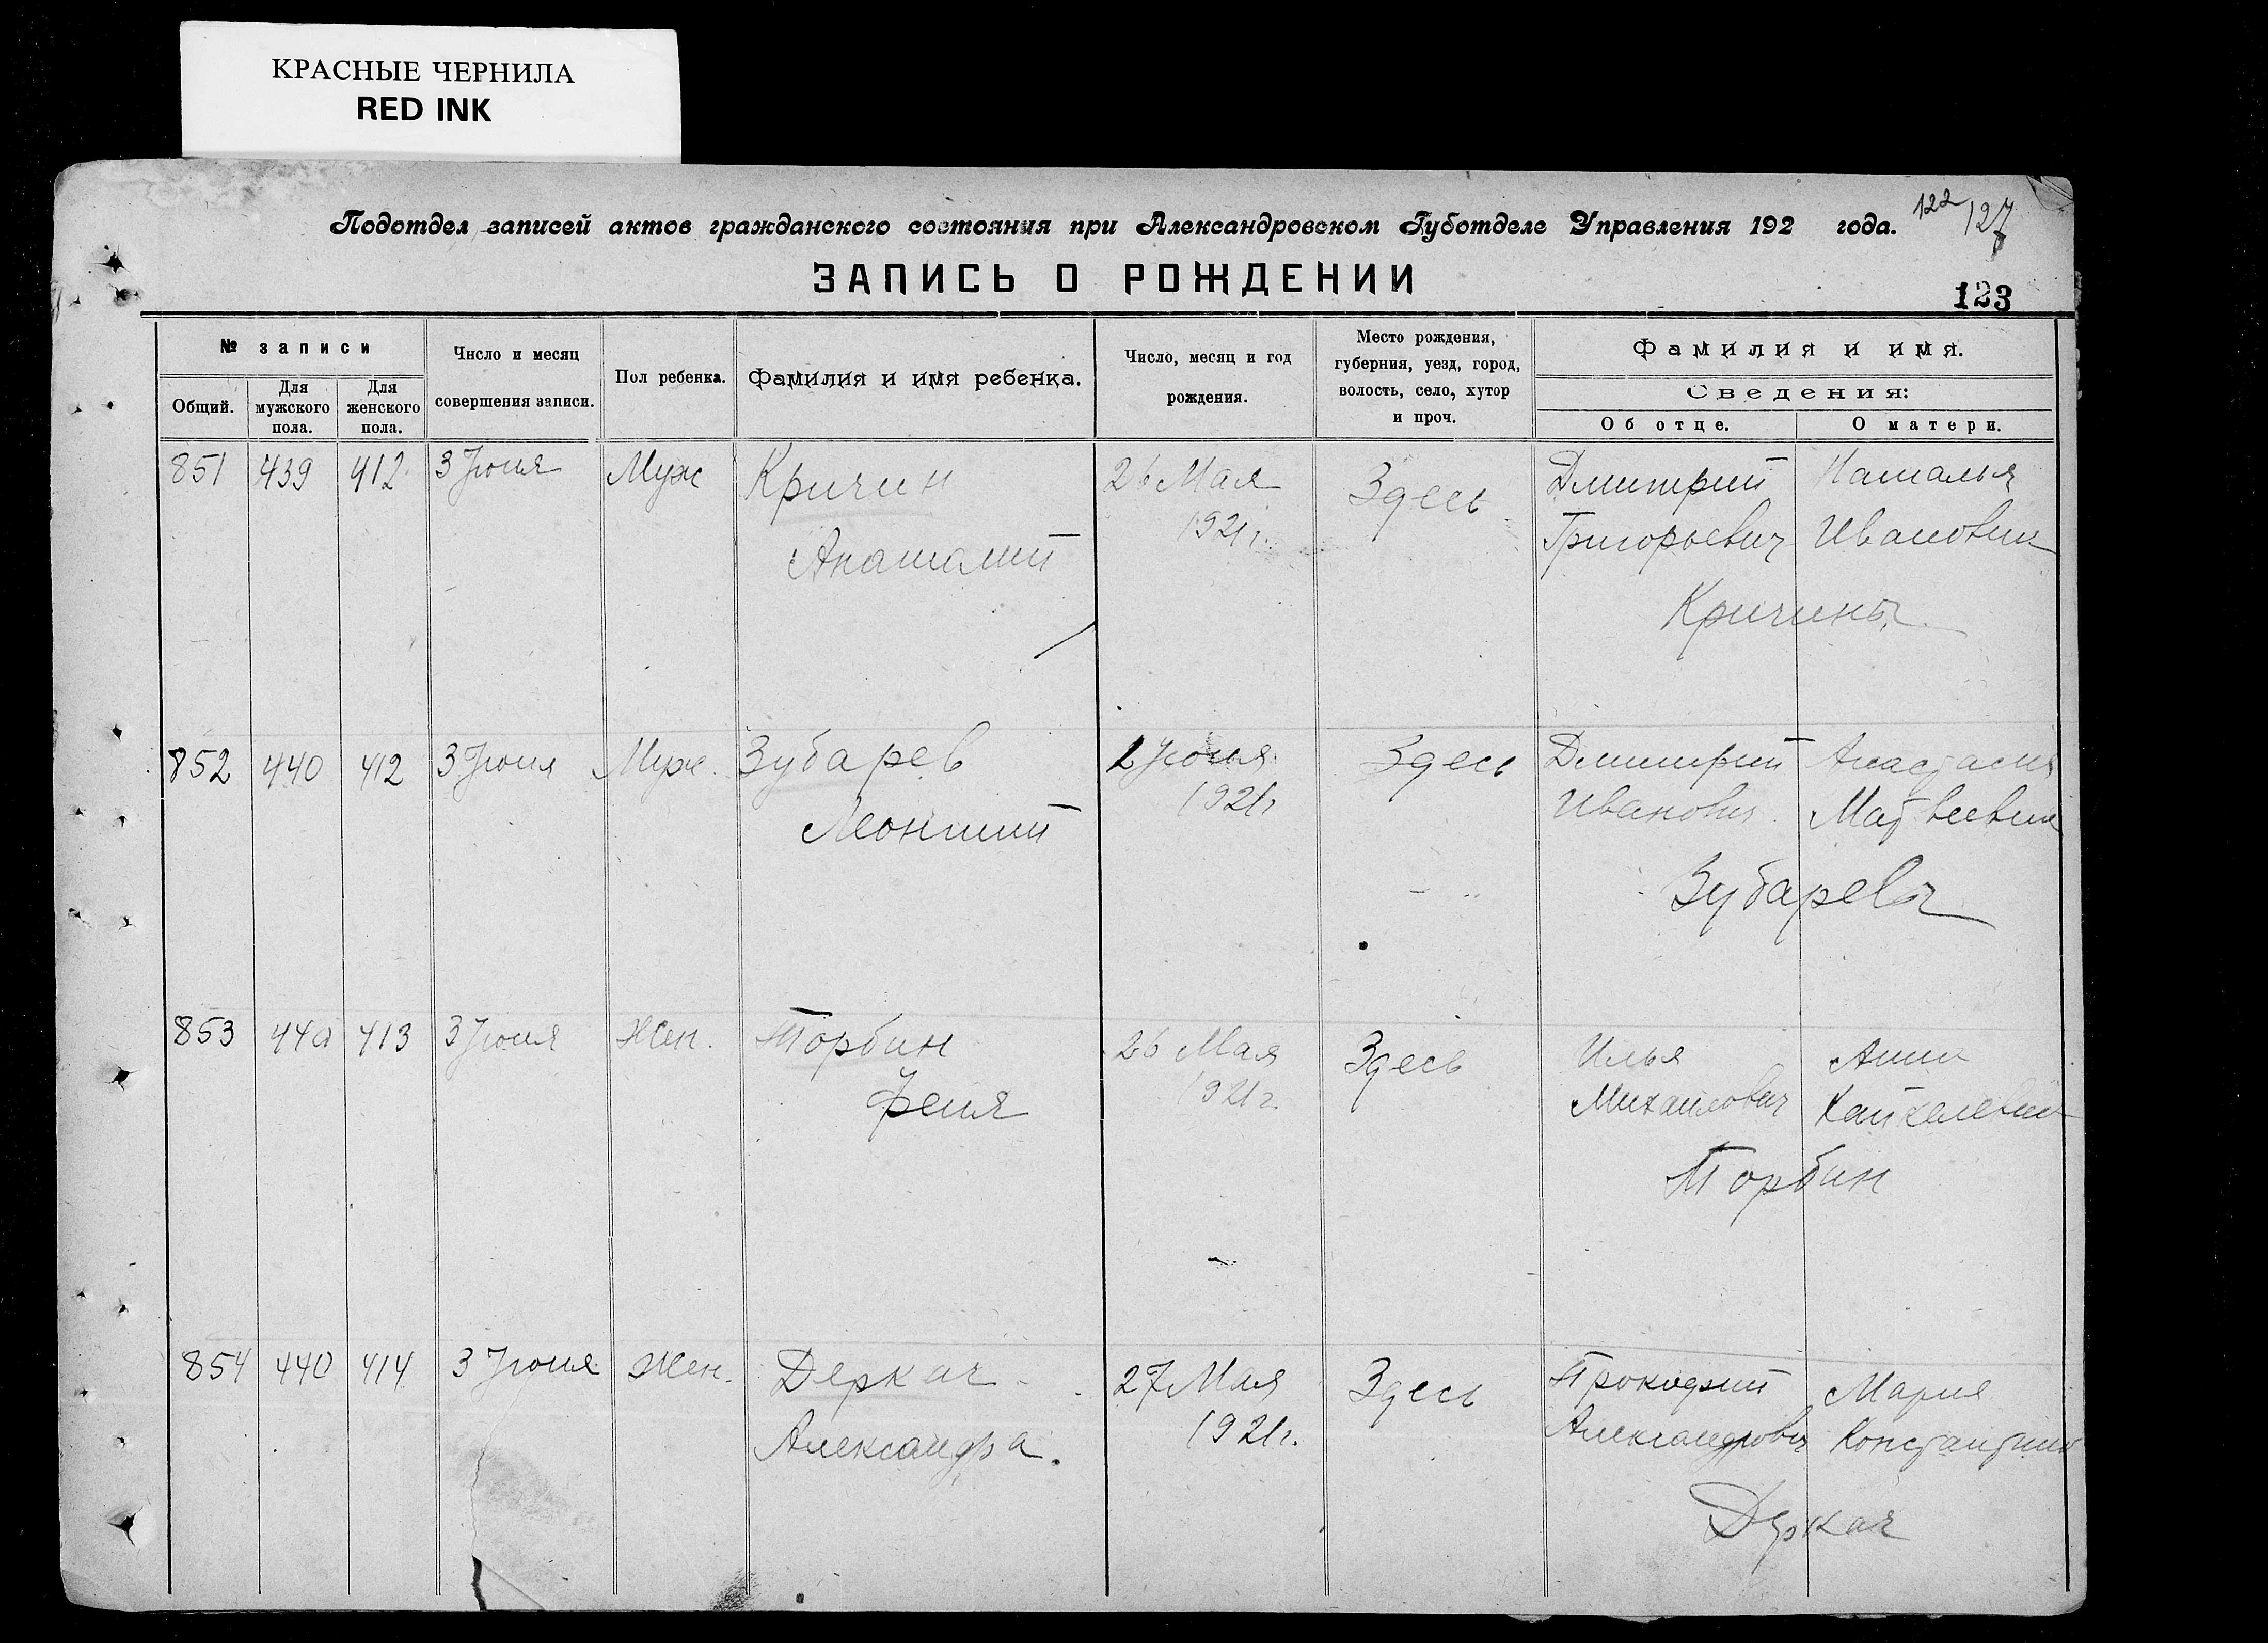 КРАСНЫЕ ЧЕРНИЛА
RED INK
122 127
Подотдел записей актов гражданского состояния при Александровском Губотделе Управления 192 года.
ЗАПИСЬ О РОЖДЕНИИ
123
№ записи
Общий.
Для мужского пола.
Для женского пола.
Число и месяц совершения записи.
Пол ребенка.
Фамилия и имя ребенка.
Число, месяц и год рождения.
Место рождения, губерния, уезд, город, волость, село, хутор и проч.
Фамилия и имя.
Сведения:
Об отце.
О матери.
851 439 412 3 Июня Муж Кричин 26 Мая Здесь Дмитрий Наталья
Анатолий 1921г. Григорьевич Ивановна
Кричины
852 440 412 3 Июня Муж. Зубарев 2 Июня Здесь Дмитрий Анастасия
Леонтий 1921г Иванович Матвеевна
Зубаревы
853 440 413 3 Июня Жен. Торбин 26 Мая Здесь Илья Анна
Феня 1921г. Михаилович
Торбин
854 440 414 3 Июня Жен. Деркач 27 Мая Здесь Прокофий Мария
Александра. 1921г. Александрович
Деркач